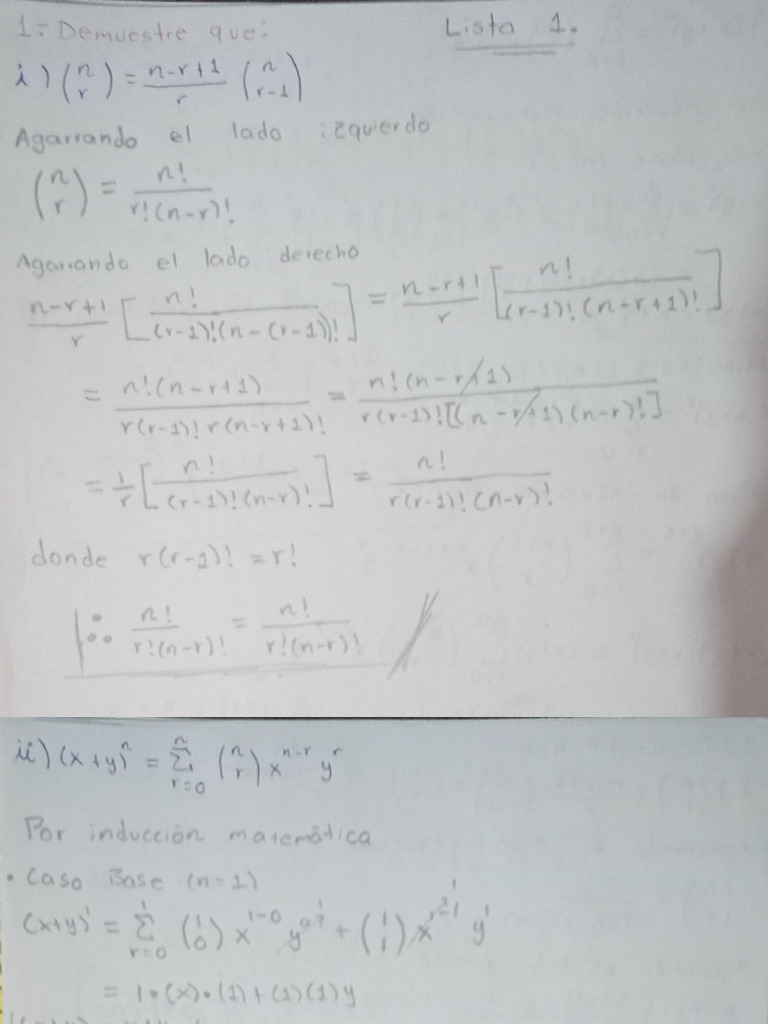 1.- Demuestre que:
Lista 1.
i) (n r) = n-r+1/r (n r-1)
Agarrando el lado izquierdo
(n r) = n!/r!(n-r)!
Agarrando el lado derecho
n-r+1/r [n!/(r-1)!(n-(r-1))!] = n-r+1/r [n!/(r-1)!(n-r+1)!]
= n!(n-r+1)/r(r-1)!r(n-r+1)! = n!(n-r+1)/r(r-1)![(n-r+1)(n-r)!]
= 1/r [n!/(r-1)!(n-r)!] = n!/r(r-1)!(n-r)!
donde r(r-1)! = r!
∴ n!/r!(n-r)! = n!/r!(n-r)!
ii) (x+y)^n = Σ_{r=0}^{n} (n r) x^{n-r} y^r
Por inducción matemática
• Caso Base (n=1)
(x+y)^1 = Σ_{r=0}^{1} (1 0) x^{1-0} y^0 + (1 1) x^{1-1} y^1
= 1•(x)•(1)+(1)(1)y